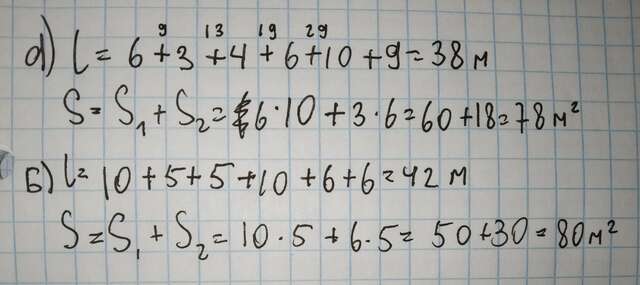 9 13 19 29
а) l = 6 + 3 + 4 + 6 + 10 + 9 = 38 м
S = S₁ + S₂ = 6 · 10 + 3 · 6 = 60 + 18 = 78 м²
Б) l = 10 + 5 + 5 + 10 + 6 + 6 = 42 м
S = S₁ + S₂ = 10 · 5 + 6 · 5 = 50 + 30 = 80 м²